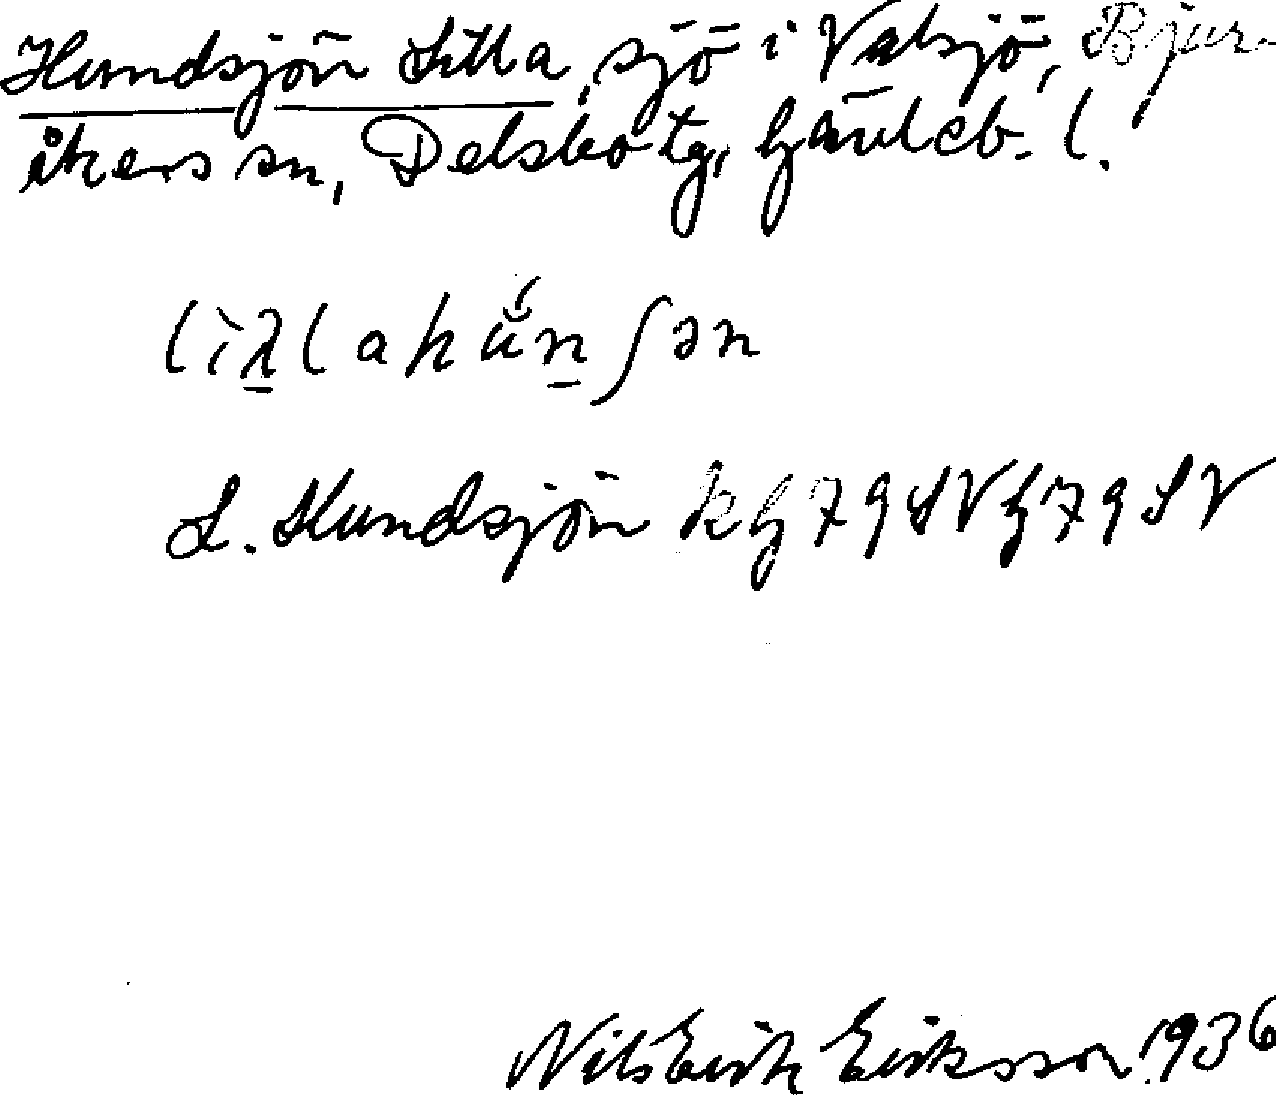 Hundsjön Lilla, sjö i Valsjö, Bjur-
åkers sn, Delsbo tg, Gävleb. l.
lìλ̠lahŭ́n̠ʃən
L. Hundsjön k G 79 SV G 79 SV
Nils Erik Eriksson 1936